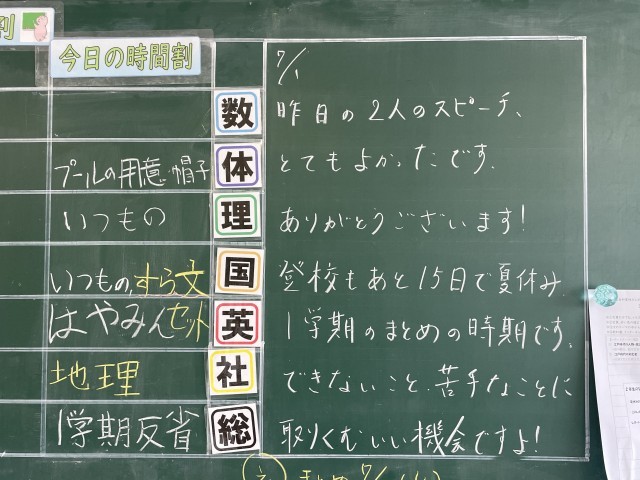 今日の時間割
数
プールの用意・帽子 体
いつもの 理
いつもの,すら文 国
はやみんセット 英
地理 社
1学期反省 総
7/1
昨日の2人のスピーチ、
とてもよかったです.
ありがとうございます!
登校もあと15日で夏休み
1学期のまとめの時期です.
できないこと、苦手なことに
取りくむいい機会ですよ!